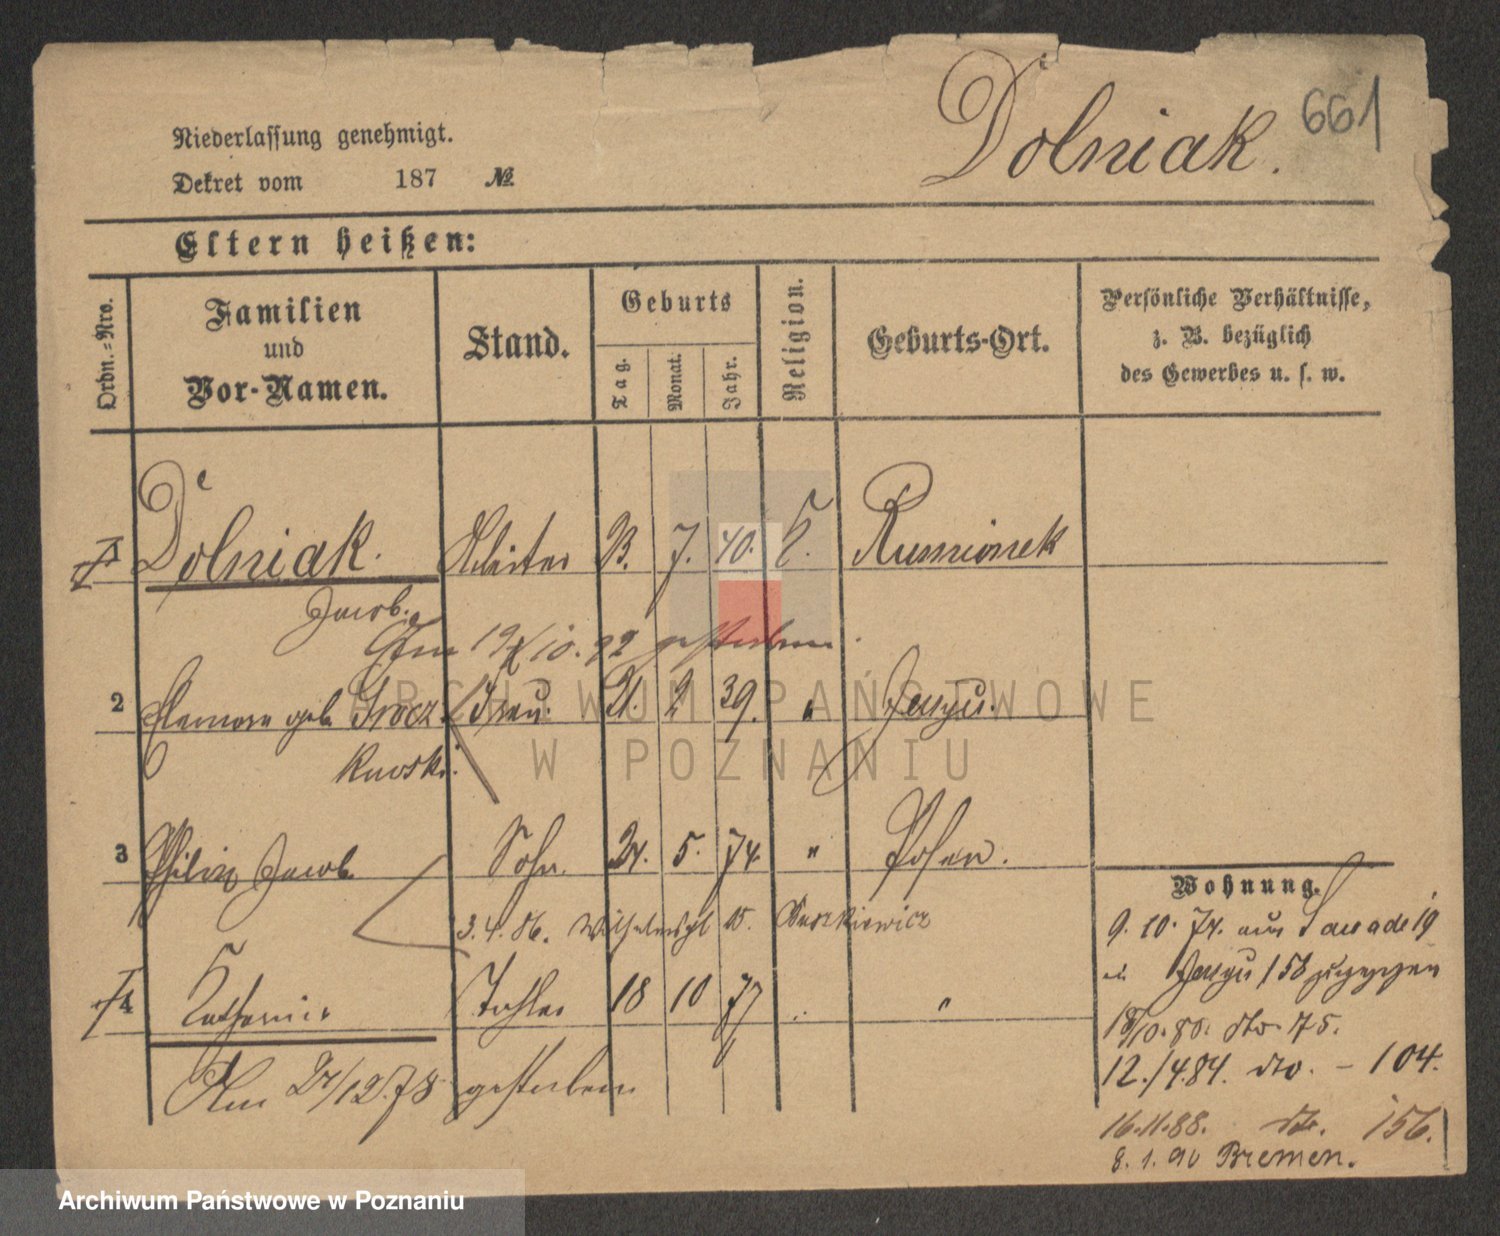 Dolniak. 661
Niederlassung genehmigt.
Dekret vom 187 №
Eltern heißen:
Ordn.-Nro.
Familien
und
Vor-Namen.
Stand.
Geburts
Tag. Monat. Jahr.
Religion.
Geburts-Ort.
Persönliche Verhältnisse,
z. B. bezüglich
des Gewerbes u. s. w.
1 Dolniak. Arbeiter 7. 40. K. Rumianek
Jacob.
Am 19/10. 92 gestorben.
2 geb. Frau. 21. 2 39. " Jersyce.
kowski.
3 Philipp Jacob. Sohn. 24. 5. 74. " Posen.
3. 4. 86.
4 Katharina Tochter 18 10 77 "
Am 24/12. 78 gestorben
Wohnung.
9. 10. 74. aus
Jersyce 158 zugezogen
18/10. 80. dto. 75.
12./4. 84. dto. – 104.
16. 11. 88. dto. 156.
8. 1. 90 Bremen.
ARCHIWUM PAŃSTWOWE
W POZNANIU
Archiwum Państwowe w Poznaniu